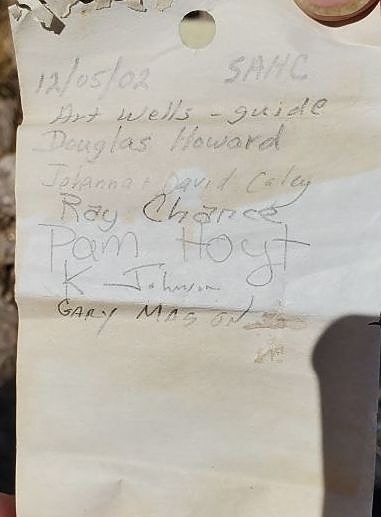 12/05/02 SAHC
Art Wells - guide
Douglas Howard
Johanna + David Caley
Ray Chance
Pam Hoyt
K Johnson
GARY MASON